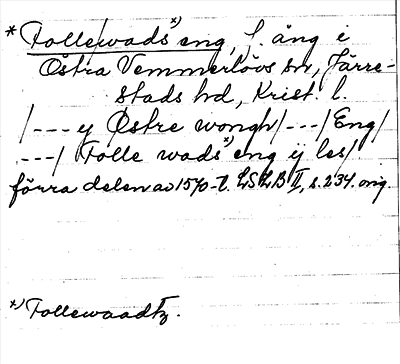 * Follewads *) eng, f. äng i
Östra Vemmerlövs sn, Järre-
stads hd, Krist. l.
/--- y Østre wongh/---/Eng/
---/ Folle wads *) eng ij les/.
förra delen av 1570-t. LSLB II, s. 234. orig.
*) Follewaadtz.